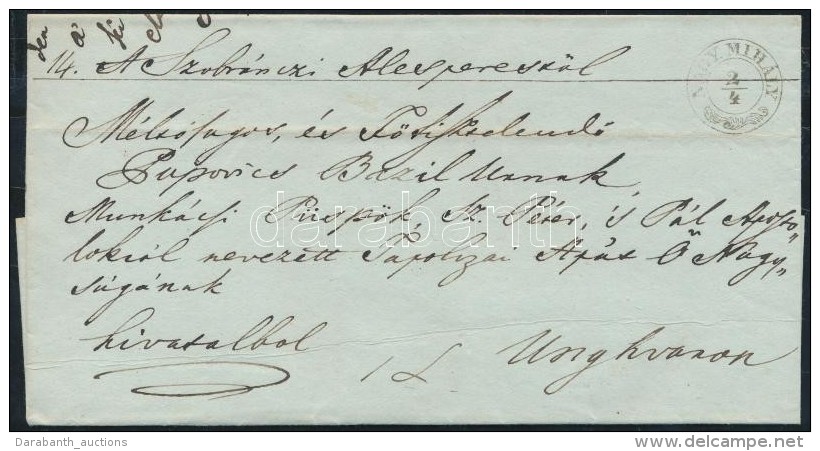 14. A Szobránczi Alesperestöl
NAGY MIHÁLY
2/4
Méltóságos, és Fötisztelendö
Popovics Bazil Urnak
Munkácsi Püspök, Sz. Péter, és Pál Aposto„
lokról nevezett Tapolczai Apát Ö Nagy„
ságának
hivatalbol
Unghvaron
darabanth
Darabanth_auctions
delcampe.net